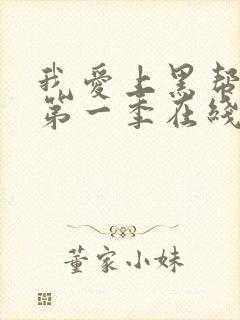 我爱上黑帮
第一季在线
董家小妹